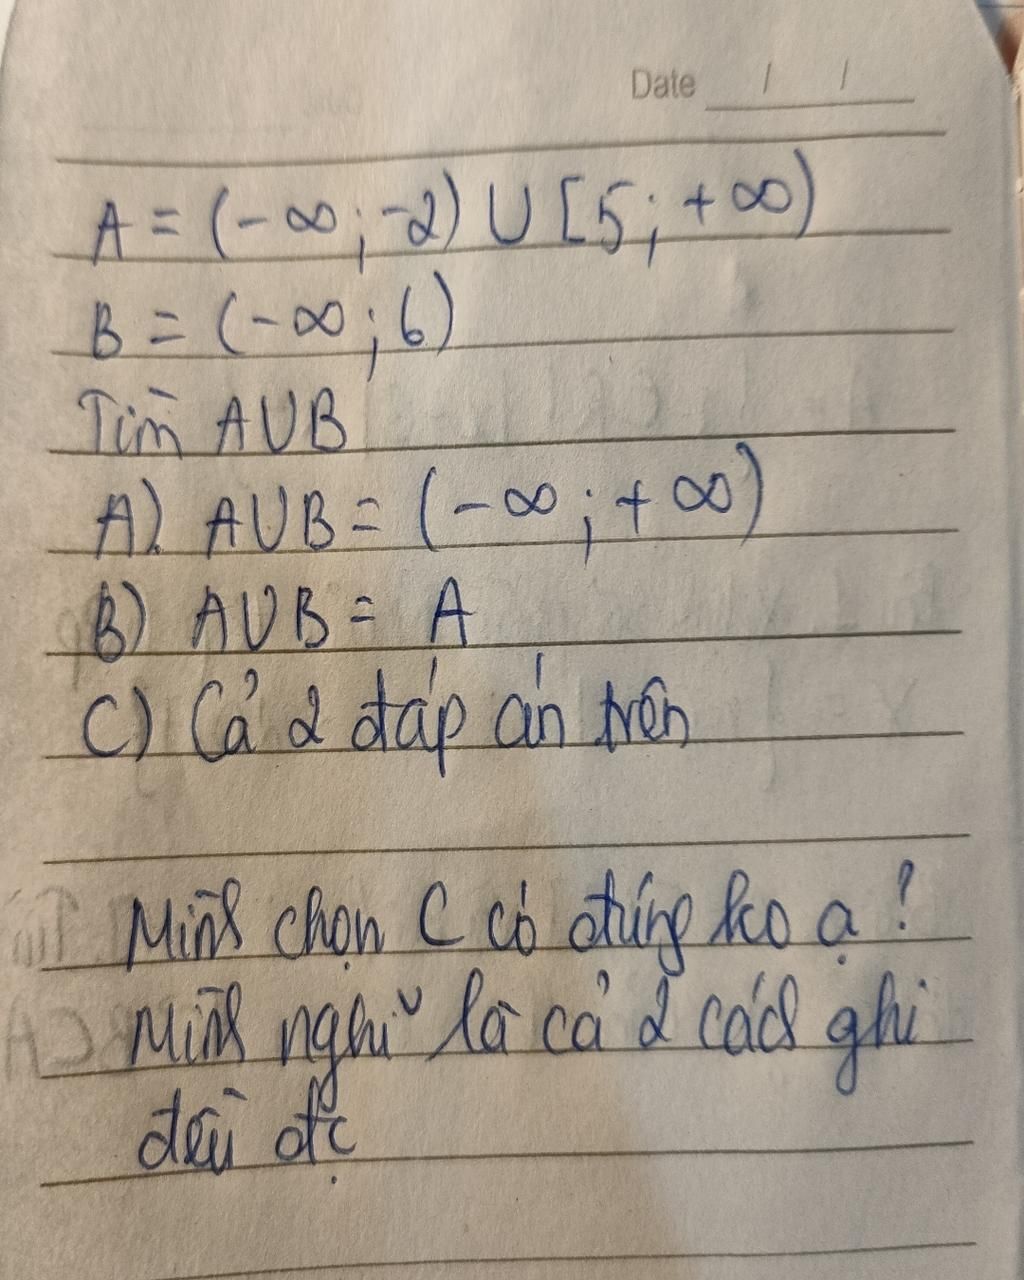 Date / /
A = (-∞; -2) ∪ [5; +∞)
B = (-∞; 6)
Tìm A∪B
A) A∪B = (-∞; +∞)
B) A∪B = A
C) Cả 2 đáp án trên
Mình chọn C có đúng ko ạ?
Mình nghĩ là cả 2 cách ghi
đều đc